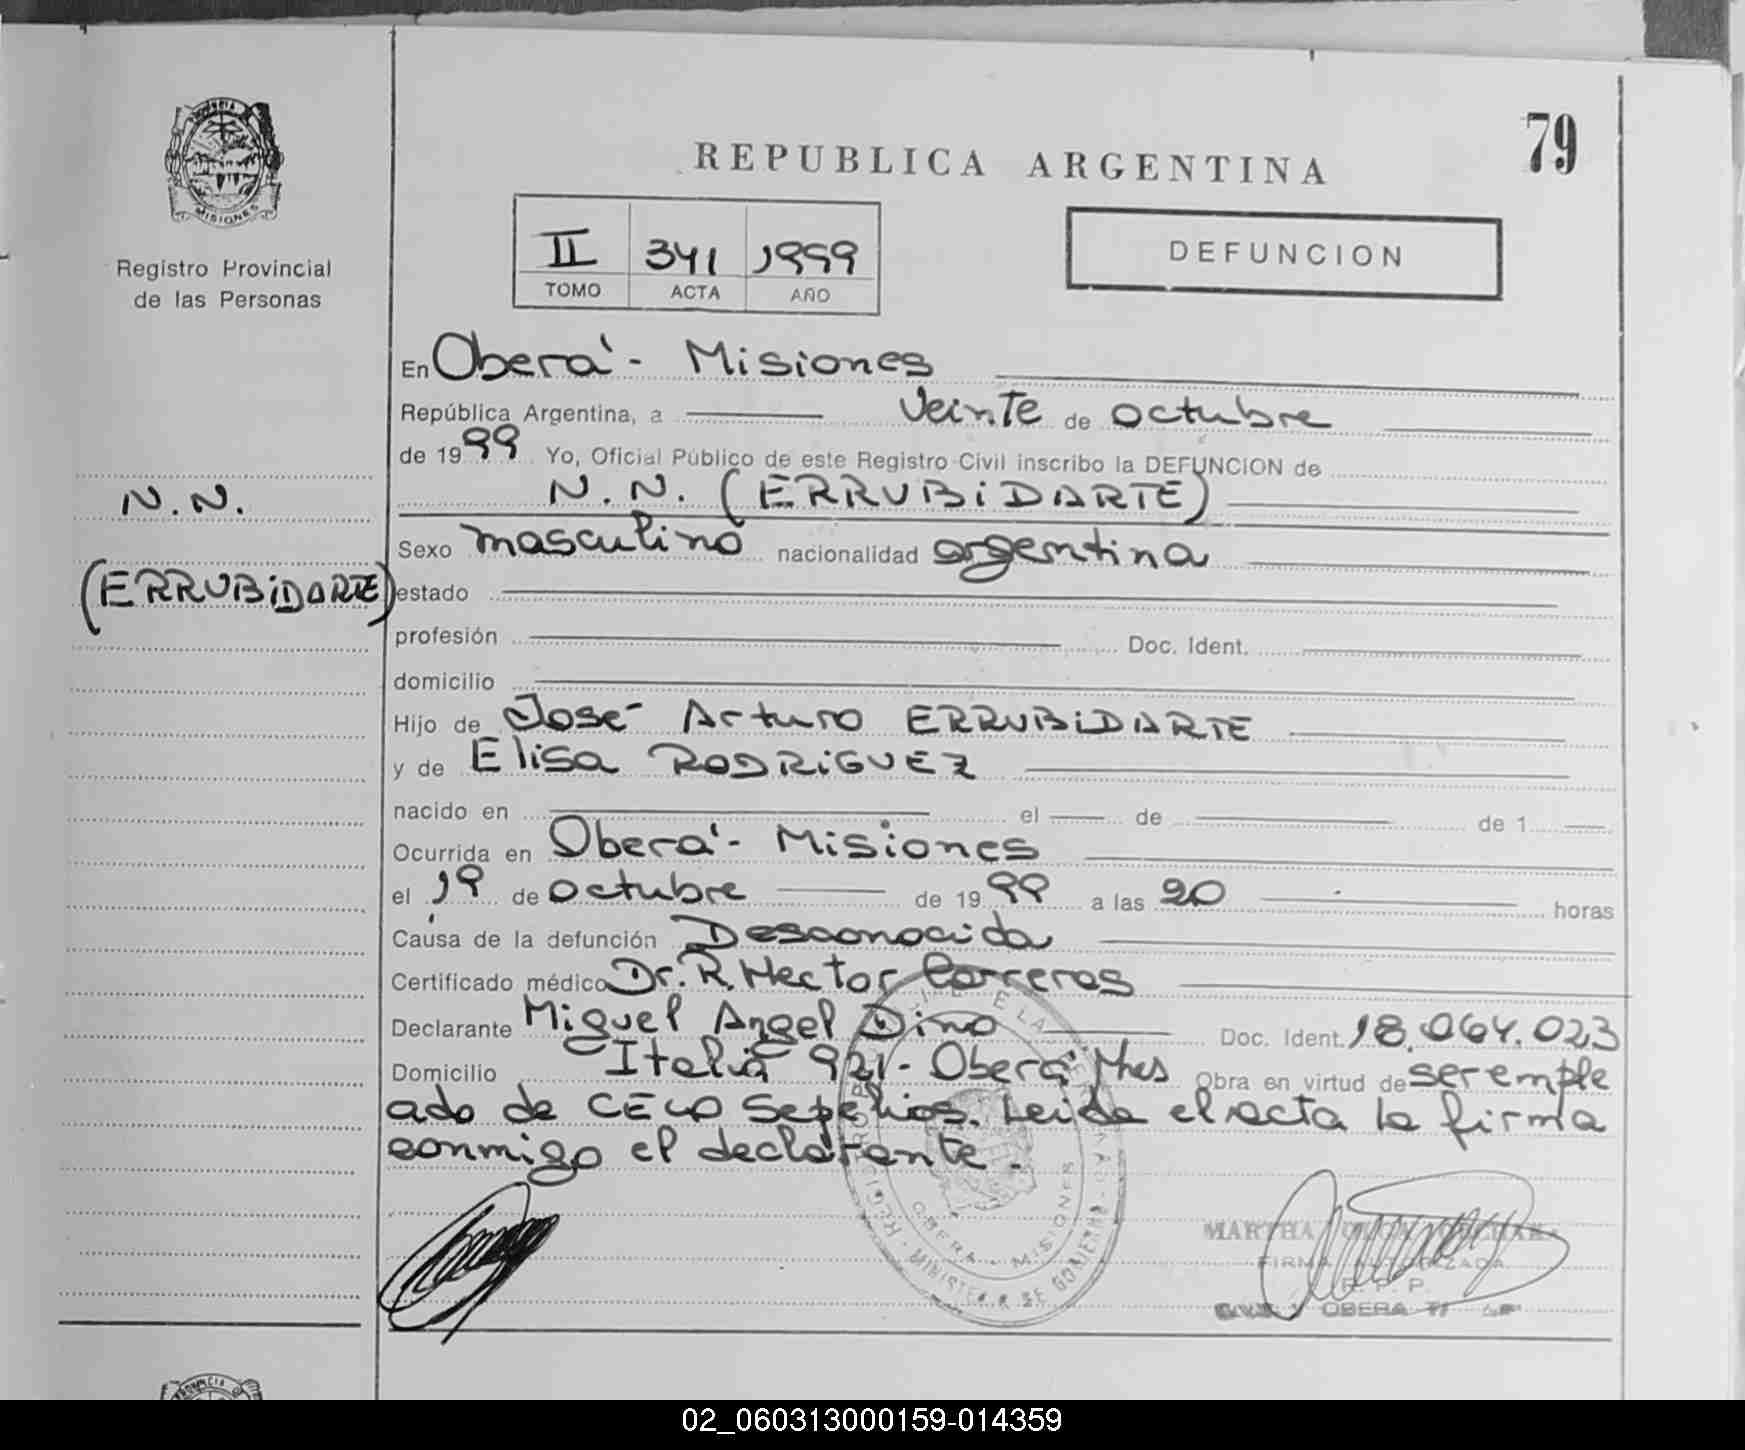 79
REPUBLICA ARGENTINA
PROVINCIA
MISIONES
Registro Provincial
de las Personas
II 341 1999
TOMO ACTA AÑO
DEFUNCION
En Oberá - Misiones
República Argentina, a veinte de octubre
de 1999 Yo, Oficial Público de este Registro Civil inscribo la DEFUNCION de
N.N. (ERRUBiDARTE)
N.N.
(ERRUBiDARTE)
Sexo masculino nacionalidad argentina
estado
profesión Doc. Ident.
domicilio
Hijo de José Arturo ERRUBiDARTE
y de Elisa RODRiGUEZ
nacido en el de de 1
Ocurrida en Oberá - Misiones
el 19 de octubre de 1999 a las 20 horas
Causa de la defunción Desconocida
Certificado médico Dr. R. Hector Carreras
Declarante Miguel Angel Dino Doc. Ident. 18.064.023
Domicilio Italia 921 - Oberá Mnes Obra en virtud de ser emple
ado de CELO Sepelios. Leida el acta la firma
conmigo el declarante.
OBERA - MISIONES
MARTHA OLGA
FIRMA AUTORIZADA
R. P. P.
OBERA
02_060313000159-014359